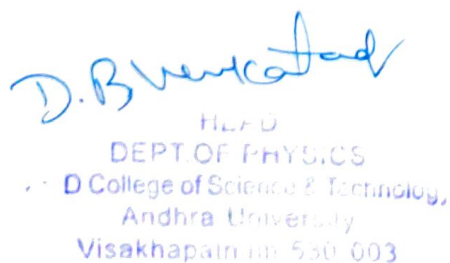 HEAD
DEPT.OF PHYSICS
D College of Science & Technology,
Andhra University
Visakhapatnam 530 003